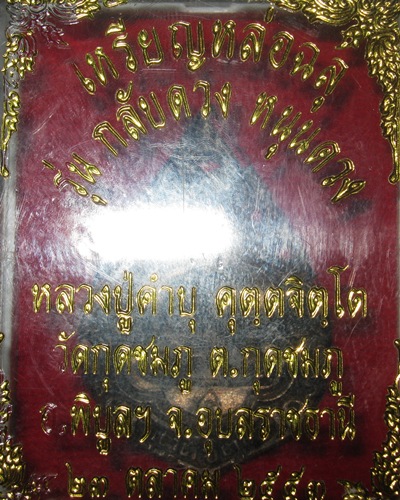 เหรียญหล่อฉลุ
รุ่น กลับดวง หนุนดวง
หลวงปู่คำบุ คุตฺตจิตฺโต
วัดกุดชมภู ต.กุดชมภู
อ.พิบูลฯ จ.อุบลราชธานี
๒๓ ตุลาคม ๒๕๕๓